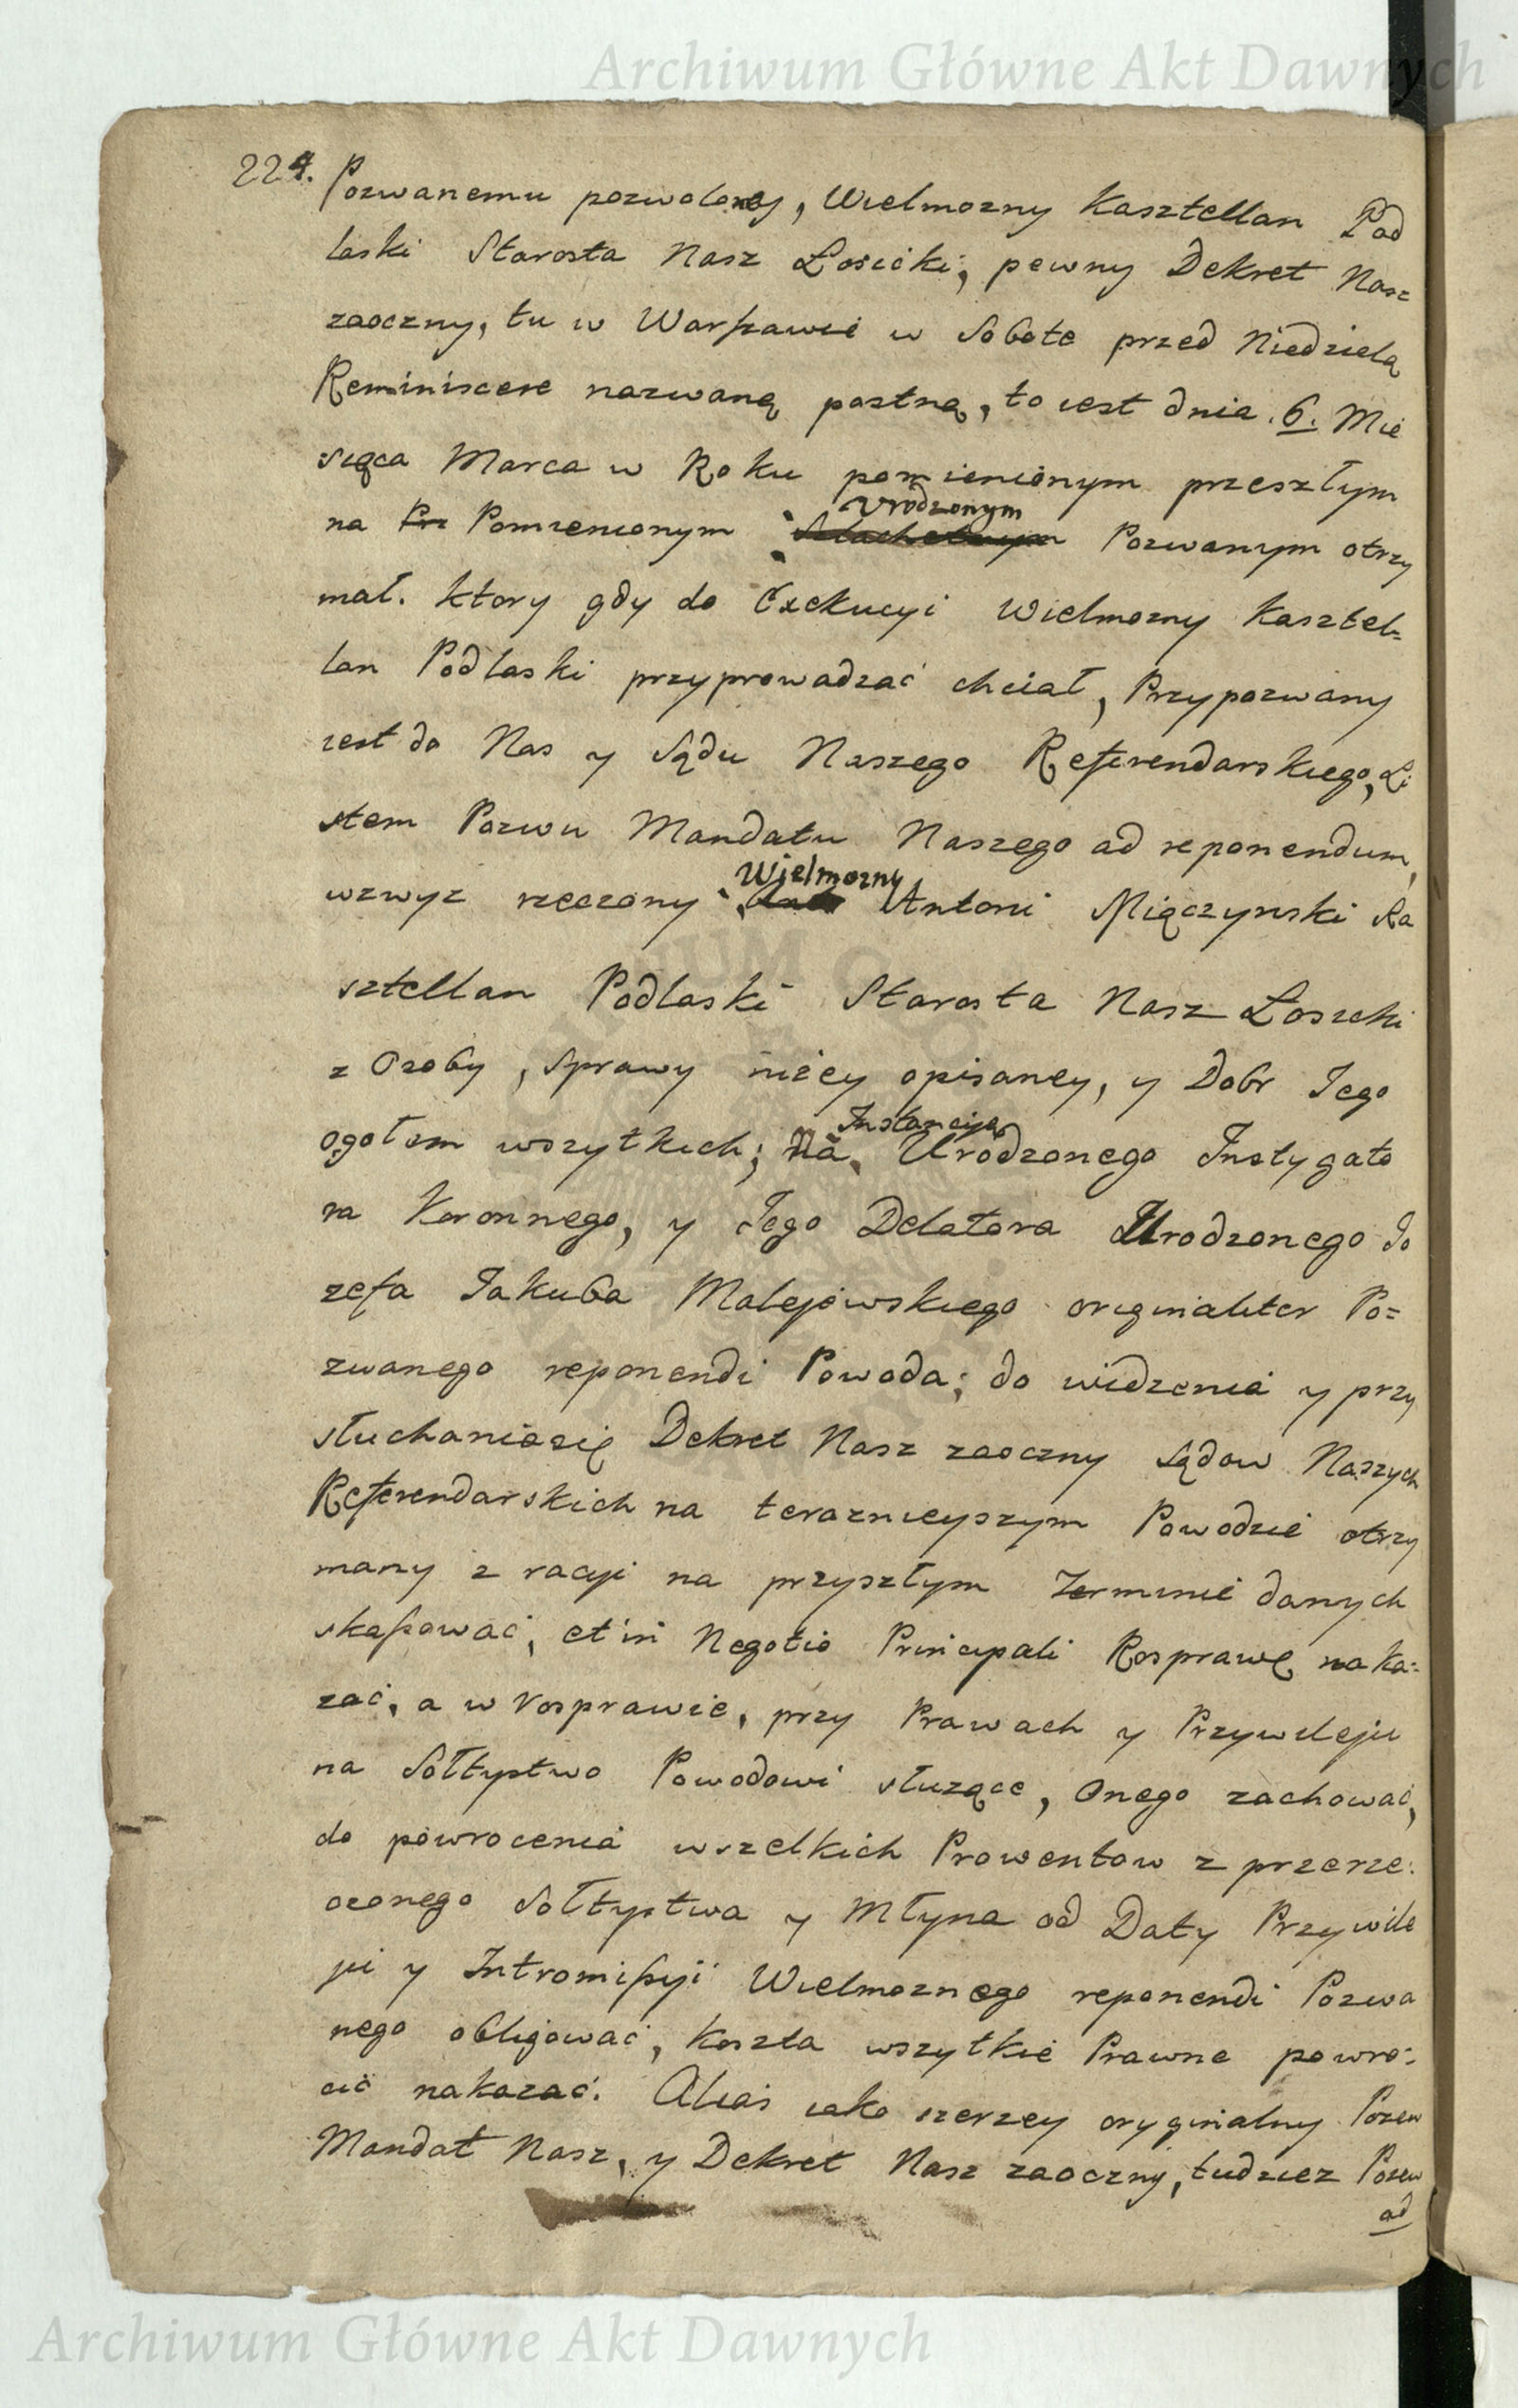 Archiwum Główne Akt Dawnych
224.
Pozwanemu pozwoloney, Wielmozny Kasztellan Pod
laski Starosta Nasz Łosicki, pewny Dekret Nasz
zaoczny, tu w Warszawie w Sobote przed Niedzielą
Reminiscere nazwaną postną, to iest dnia .6. Mie
siąca Marca w Roku pomienionym przeszłym
na Prz Pomienionym Urodzonym Szlachetnym Pozwanym otrzy
mał. ktory gdy do Exekucyi Wielmozny Kasztel=
lan Podlaski przyprowadzać chciał, Przypozwany
iest do Nas y Sądu Naszego Referendarskiego, Li
stem Pozwu Mandatu Naszego ad reponendum,
wzwyz rzeczony Wielmozny Antoni Miączynski Ka
sztellan Podlaski Starosta Nasz Łosicki
z Osoby, Sprawy niżey opisaney, y Dobr Iego
ogołem wszytkich; Na Instancyą Urodzonego Instygato
ra Koronnego, y Iego Delatora Urodzonego Io
zefa Iakuba Malejowskiego originaliter Po=
zwanego reponendi Powoda; do widzenia y przy
słuchania się Dekret Nasz zaoczny Sądow Naszych
Referendarskich na teraznieyszym Powodzie otrzy
many z racyi na przyszłym Terminie danych
skassować, et in Negotio Principali Rosprawę naka=
zać, a w rosprawie, przy Prawach y Przywileju
na Sołtystwo Powodowi służące, Onego zachować,
do powrocenia wszelkich Prowentow z przerze=
czonego Sołtystwa y Młyna od Daty Przywile
ju y Intromissyi Wielmoznego reponendi Pozwa
nego obligować, koszta wszytkie Prawne powro=
cić nakazać. Alias iako szerzey oryginalny Pozew
Mandat Nasz, y Dekret Nasz zaoczny, tudziez Pozew
ad
Archiwum Główne Akt Dawnych